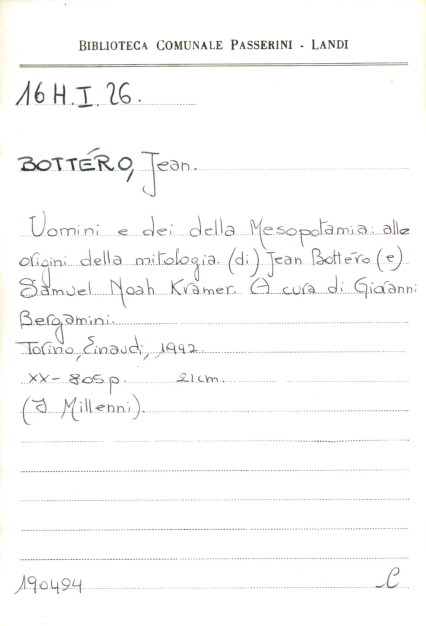 BIBLIOTECA COMUNALE PASSERINI - LANDI
16 H.I. 26.
BOTTÉRO, Jean.
Uomini e dei della Mesopotamia: alle
origini della mitologia. (di) Jean Bottéro (e)
Samuel Noah Kramer. (A cura di Giovanni
Bergamini.
Torino, Einaudi, 1992.
XX - 805 p. 21 cm.
(I Millenni).
190494 C